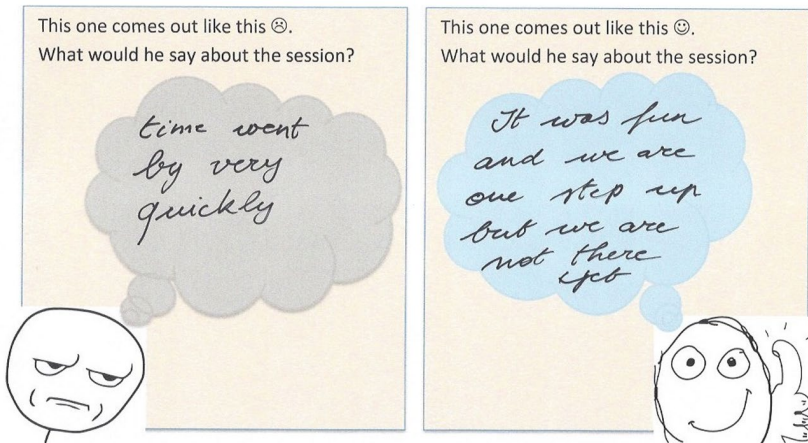 This one comes out like this ☹.
What would he say about the session?
time went
by very
quickly
This one comes out like this ☺.
What would he say about the session?
It was fun
and we are
one step up
but we are
not there
yet